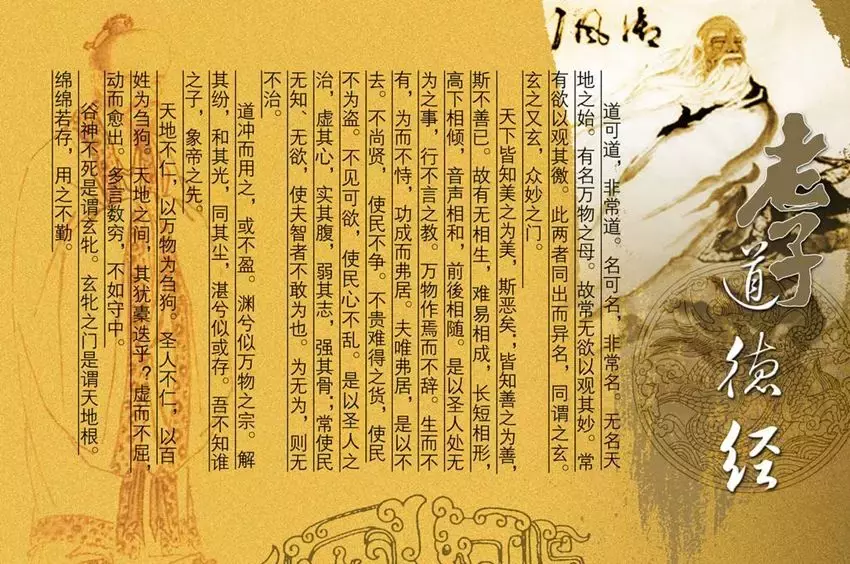 老子
道德经
道可道，非常道。名可名，非常名。无名天
地之始。有名万物之母。故常无欲以观其妙。常
有欲以观其徼。此两者同出而异名，同谓之玄。
玄之又玄，众妙之门。
天下皆知美之为美，斯恶矣；皆知善之为善，
斯不善已。故有无相生，难易相成，长短相形，
高下相倾，音声相和，前後相随。是以圣人处无
为之事，行不言之教。万物作焉而不辞。生而不
有，为而不恃，功成而弗居。夫唯弗居，是以不
去。不尚贤， 使民不争。不贵难得之货，使民
不为盗。不见可欲，使民心不乱。是以圣人之
治，虚其心，实其腹，弱其志，强其骨；常使民
无知、无欲，使夫智者不敢为也。为无为，则无
不治。
道冲而用之，或不盈。渊兮似万物之宗。解
其纷，和其光，同其尘，湛兮似或存。吾不知谁
之子，象帝之先。
天地不仁，以万物为刍狗。圣人不仁，以百
姓为刍狗。天地之间，其犹橐迭乎？虚而不屈，
动而愈出。多言数穷，不如守中。
谷神不死是谓玄牝。玄牝之门是谓天地根。
绵绵若存，用之不勤。